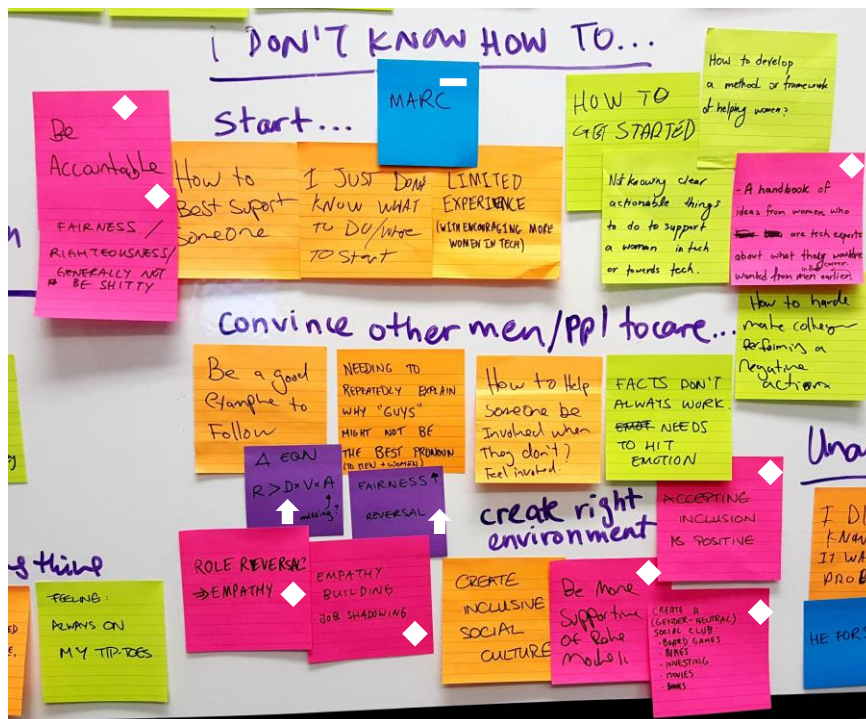 I DON'T KNOW HOW TO...
Start...
MARC
Be
Accountable
FAIRNESS /
RIGHTEOUSNESS/
GENERALLY NOT
BE SHITTY
How to
Best Suport
Someone
I JUST DON'T
KNOW WHAT
TO DO/
TO Start
LIMITED
EXPERIENCE
(WITH ENCOURAGING MORE
WOMEN IN TECH)
HOW TO
GET STARTED
How to develop
a method or framework
of helping women?
Not knowing clear
actionable things
to do to support
a woman in tech
or towards tech.
- A handbook of
ideas from women who
are tech experts
about what they would've
wanted from men earlier
in their career
convince other men/ppl to care...
Be a good
example to
Follow
NEEDING TO
REPEATEDLY EXPLAIN
WHY "GUYS"
MIGHT NOT BE
THE BEST PRONOUN
(TO MEN + WOMEN)
How to Help
Someone be
Involved when
They don't?
Feel involved.
FACTS DON'T
ALWAYS WORK.
NEEDS
TO HIT
EMOTION
How to
male
performing a
negative
action
Δ EQN
R > D × V × A
missing?
FAIRNESS
REVERSAL
ROLE REVERSAL?
⇒ EMPATHY
EMPATHY
BUILDING
JOB SHADOWING
create right
environment
CREATE
INCLUSIVE
SOCIAL
CULTURE
Be More
Supportive
of Role
Models
ACCEPTING
INCLUSION
AS POSITIVE
CREATE A
(GENDER-NEUTRAL)
SOCIAL CLUB:
- BOARD GAMES
- BIKES
- INVESTING
- MOVIES
- BOOKS
FEELING:
ALWAYS ON
MY TIP-TOES
Una
I D
KNOW
IT WA
PROB
HE FORS